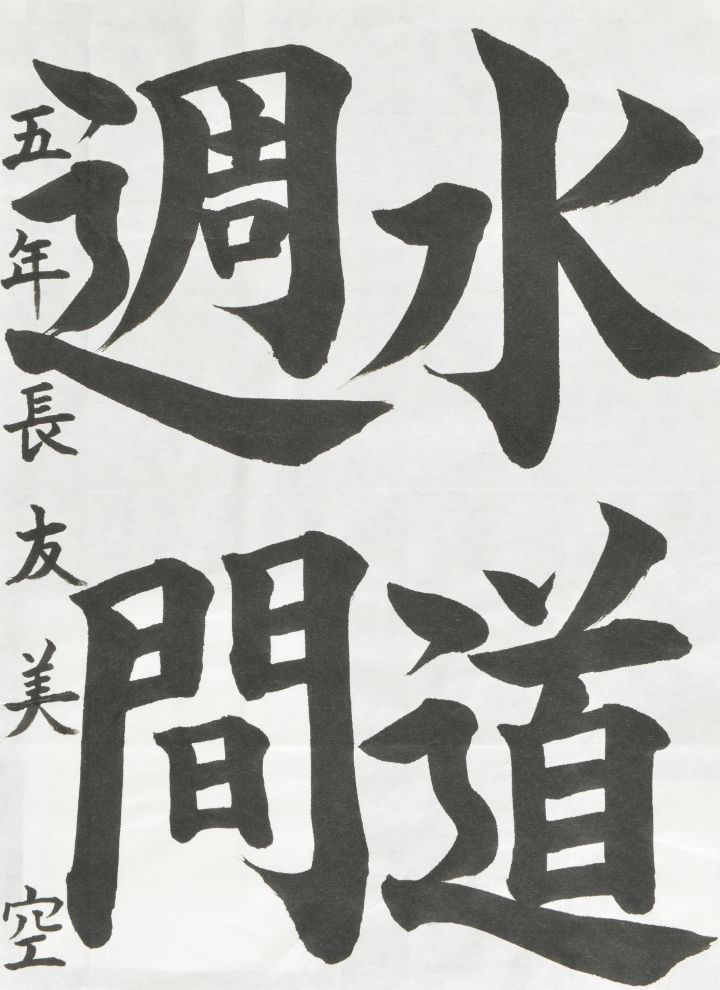 水道
週間
五年長友美空